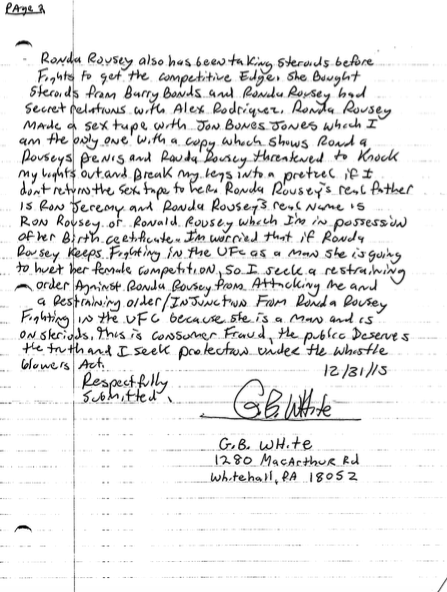 PAge 2
Ronda Rousey also has been taking steroids before
Fights to get the competitive Edge. She Bought
Steroids from Barry Bonds and Ronda Rousey had
Secret relations with Alex Rodriquez. Ronda Rousey
MADE a Sex tape with JON BONES JONES which I
am the only one with a copy which shows Ronda
Rouseys penis and Ronda Rousey threatened to Knock
my lights out and Break my legs into a pretzel if I
dont return the sex tape to her. Ronda Rousey's real father
is Ron Jeremy and Ronda Rousey's real Name is
RON Rousey or Ronald Rousey which I'm in possession
of her Birth certificate. I'm worried that if Ronda
Rousey Keeps Fighting in the UFC as a man she is going
to hurt her female competition, so I seek a restraining
order Against Ronda Rousey from Attacking me and
a Restraining order/INJunction From Ronda Rousey
Fighting in the UFC because she is a Man and is
on steriods. This is consumer Fraud, the public Deserves
the truth and I seek protection under the whistle
blowers Act.
12/31/15
Respectfully
Submitted,
G.B. White
G.B. WHite
1280 MacArthur Rd
Whitehall, PA 18052